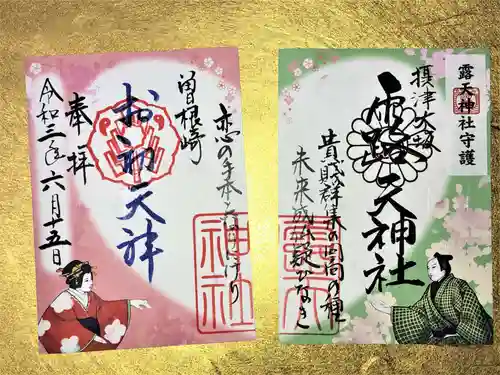 露天神社守護
摂津大坂
露天神社
貴賤群集の回向の種
未来成仏疑ひなき
恋の手本となりにけり
曽根崎
お初天神
奉拝
令和三年六月十五日
神社